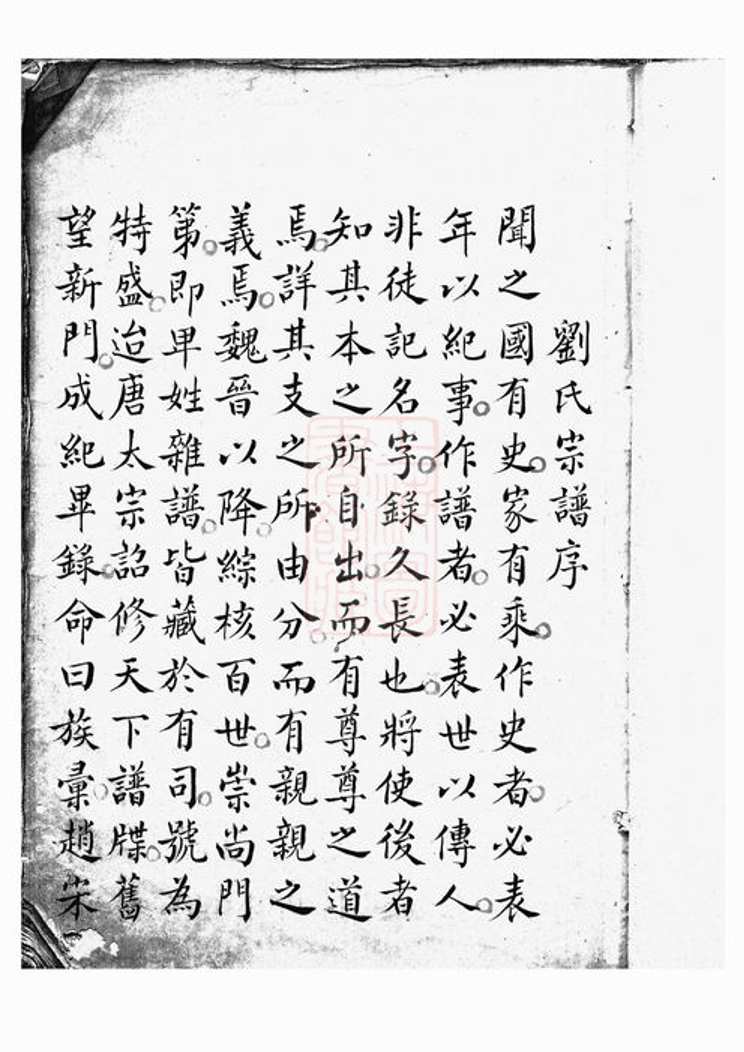 劉氏宗譜序
聞之國有史家有乘作史者必表
年以紀事作譜者必表世以傳人
非徒記名字錄久長也將使後者
知其本之所自出而有尊尊之道
焉詳其支之所由分而有親親之
義焉魏晉以降綜核百世崇尚門
第即卑姓雜譜皆藏於有司號為
特盛迨唐太宗詔修天下譜牒舊
望新門成紀畢錄命曰族彙趙宋